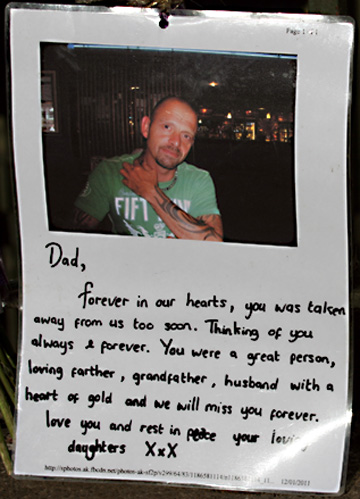 Page 1 of 1
FIFT
Dad,
forever in our hearts, you was taken
away from us too soon. Thinking of you
always & forever. You were a great person,
loving farther, grandfather, husband with a
heart of gold and we will miss you forever.
love you and rest in peace your loving
daughters XxX
12/01/2011